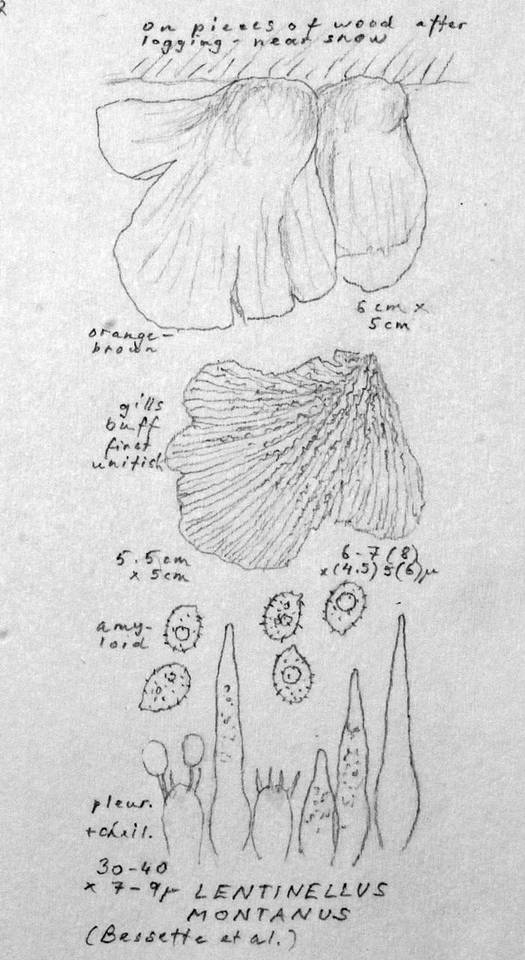 on pieces of wood after
logging - near snow
6 cm x
5 cm
orange-
brown
gills
buff
first
unitish
5.5 cm
x 5 cm
6-7 (8)
x (4.5) 5 (6) µ
amy-
loid
pleur.
+ cheil.
30-40
x 7-9 µ
LENTINELLUS
MONTANUS
(Bessette et al.)